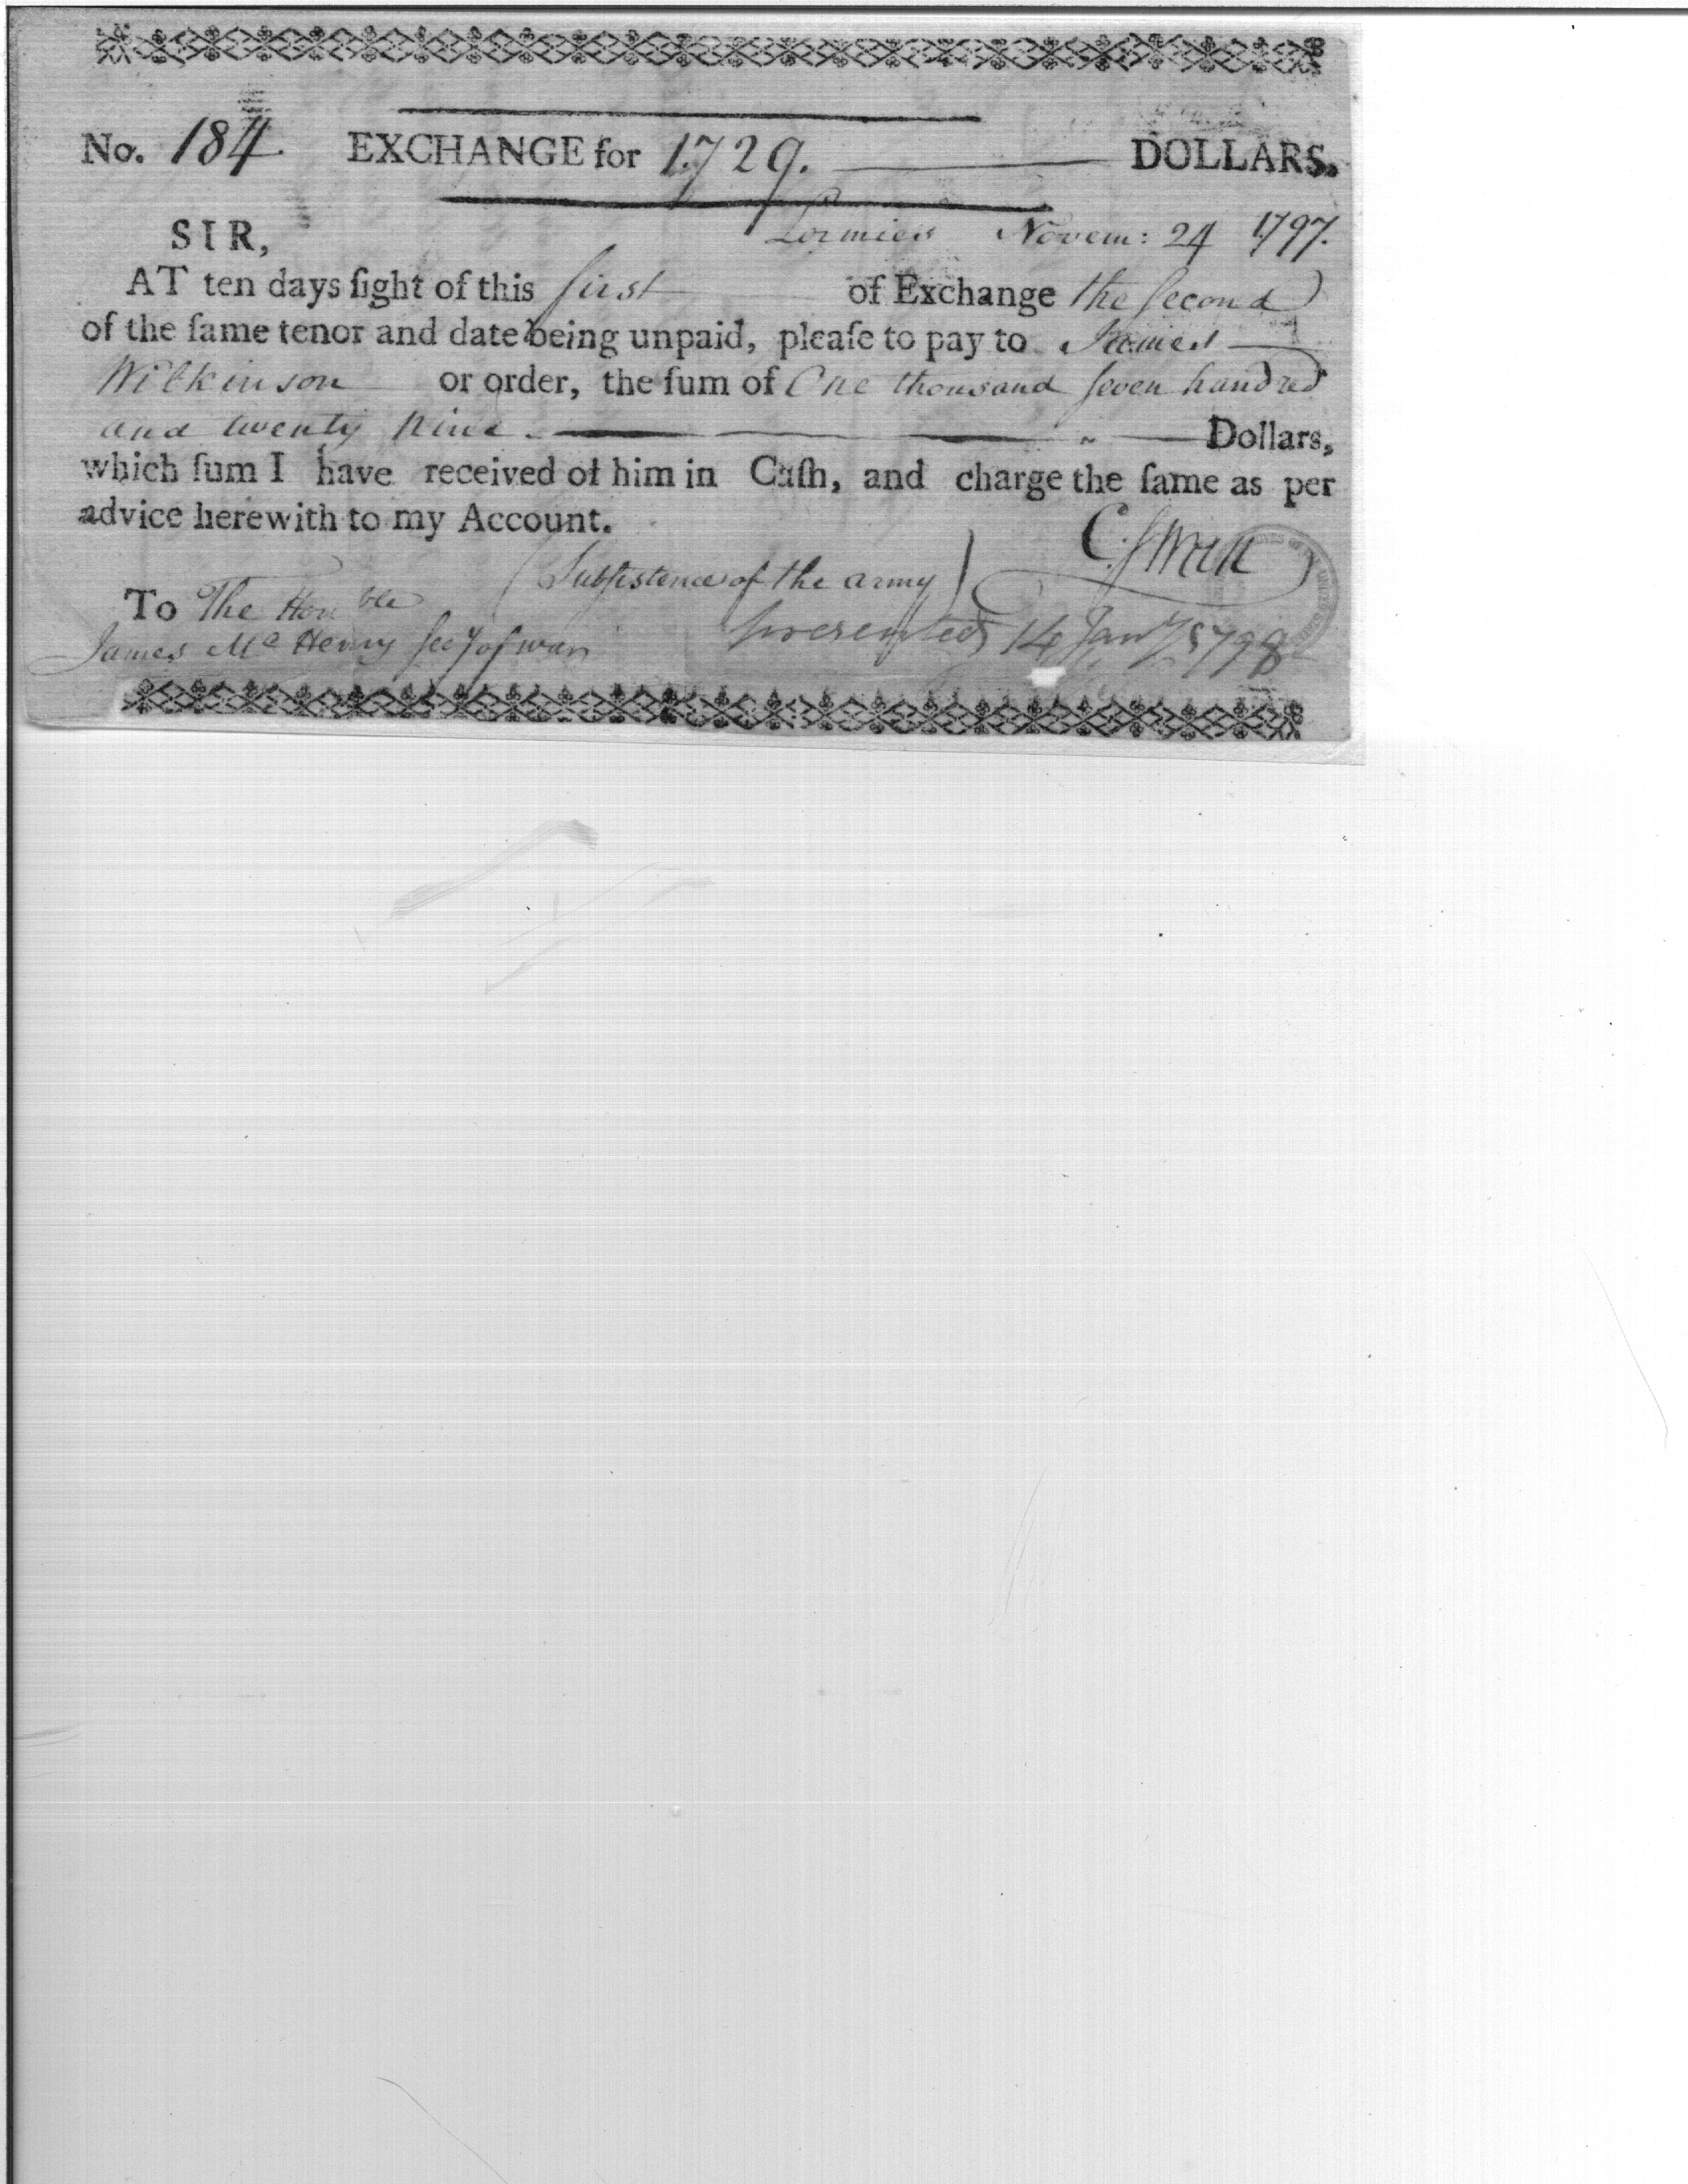 No. 184. EXCHANGE for 1.729. DOLLARS.
SIR, Lormies Novem: 24 1797.
AT ten days ſight of this first of Exchange the Second
of the ſame tenor and date being unpaid, pleaſe to pay to James
Wilkinson or order, the ſum of One thousand ſeven handred
and twenty Nine Dollars,
which ſum I have received of him in Caſh, and charge the ſame as per
advice herewith to my Account.
C. Swan
(Subſistence of the army)
To The Honble
James McHenry Secy of war
presented 14 Jany 1798